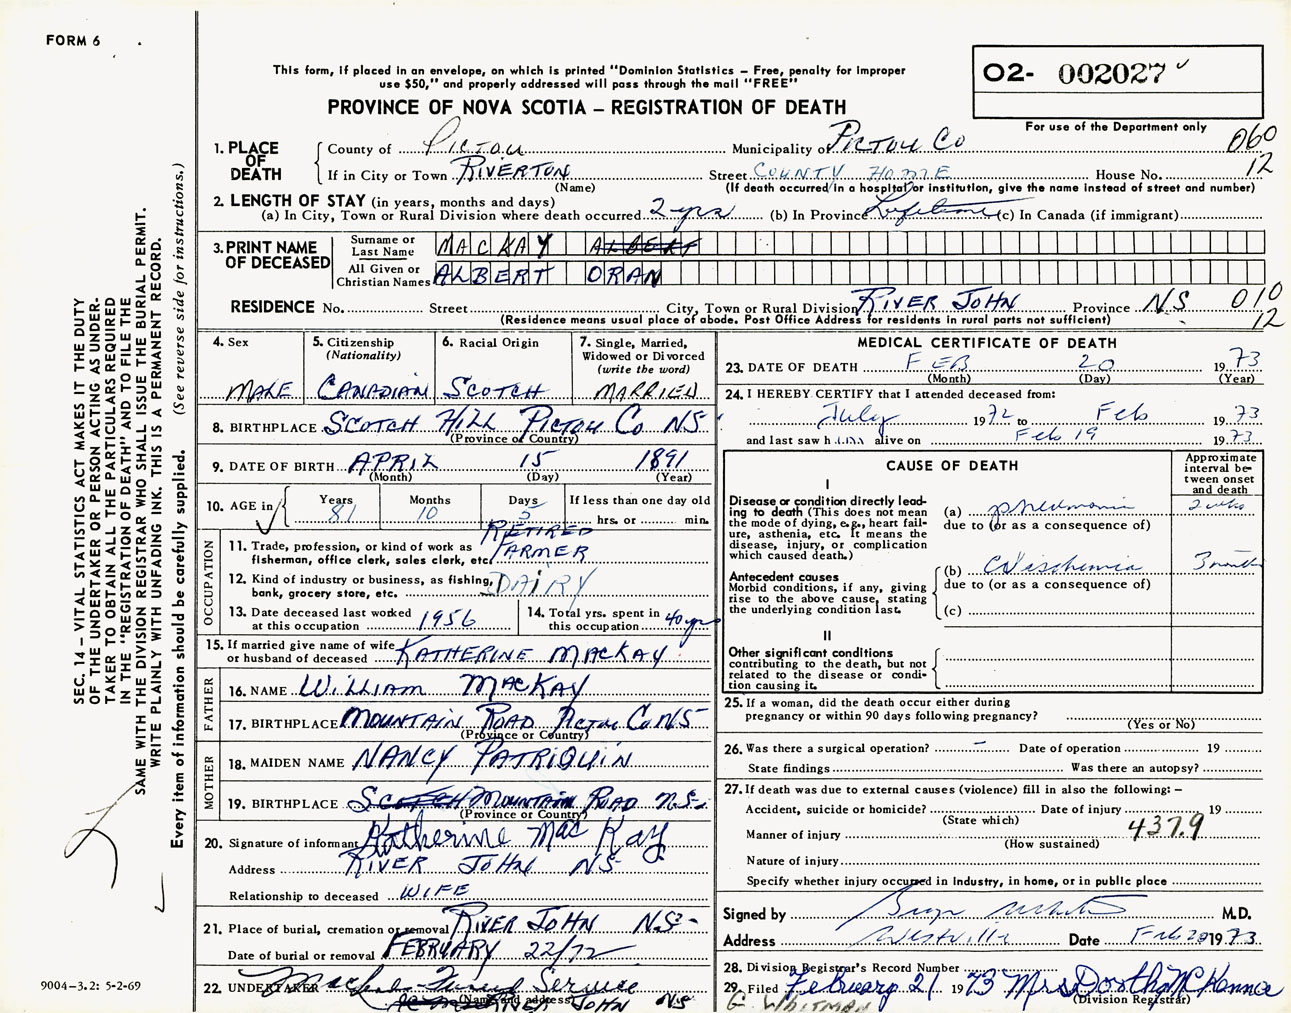 FORM 6
This form, if placed in an envelope, on which is printed "Dominion Statistics – Free, penalty for improper
use $50," and properly addressed will pass through the mail "FREE"
O2- 002027
PROVINCE OF NOVA SCOTIA – REGISTRATION OF DEATH
For use of the Department only
060
12
1. PLACE OF DEATH
County of Pictou Municipality of Pictou Co
If in City or Town Riverton Street County Home House No.
(Name) (If death occurred in a hospital or institution, give the name instead of street and number)
2. LENGTH OF STAY (in years, months and days)
(a) In City, Town or Rural Division where death occurred 2 yrs (b) In Province Lifetime (c) In Canada (if immigrant)
3. PRINT NAME OF DECEASED
Surname or Last Name MACKAY ALBERT
All Given or Christian Names ALBERT ORAN
RESIDENCE No. Street City, Town or Rural Division RIVER JOHN Province NS 010
12
(Residence means usual place of abode. Post Office Address for residents in rural parts not sufficient)
4. Sex
MALE
5. Citizenship
(Nationality)
CANADIAN
6. Racial Origin
SCOTCH
7. Single, Married,
Widowed or Divorced
(write the word)
MARRIED
8. BIRTHPLACE SCOTCH HILL PICTOU CO NS
(Province or Country)
9. DATE OF BIRTH APRIL 15 1891
(Month) (Day) (Year)
10. AGE in
Years Months Days If less than one day old
81 10 5 hrs. or min.
OCCUPATION
11. Trade, profession, or kind of work as
fisherman, office clerk, sales clerk, etc.
RETIRED
FARMER
12. Kind of industry or business, as fishing,
bank, grocery store, etc.
DAIRY
13. Date deceased last worked
at this occupation 1956
14. Total yrs. spent in
this occupation 40 yrs
15. If married give name of wife
or husband of deceased KATHERINE MACKAY
FATHER
16. NAME WILLIAM MACKAY
17. BIRTHPLACE MOUNTAIN ROAD PICTOU CO NS
(Province or Country)
MOTHER
18. MAIDEN NAME NANCY PATRIQUIN
19. BIRTHPLACE SCOTCH MOUNTAIN ROAD N.S.
(Province or Country)
20. Signature of informant Katherine MacKay
Address RIVER JOHN NS
Relationship to deceased WIFE
21. Place of burial, cremation or removal RIVER JOHN N.S.
Date of burial or removal FEBRUARY 22/72
22. UNDERTAKER Funeral Service
(Name and address) JOHN NS
MEDICAL CERTIFICATE OF DEATH
23. DATE OF DEATH FEB 20 1973
(Month) (Day) (Year)
24. I HEREBY CERTIFY that I attended deceased from:
July 1972 to Feb 1973
and last saw him alive on Feb 19 1973
CAUSE OF DEATH
Approximate
interval be-
tween onset
and death
I
Disease or condition directly lead-
ing to death (This does not mean
the mode of dying, e.g., heart fail-
ure, asthenia, etc. It means the
disease, injury, or complication
which caused death.)
(a) pneumonia 2 wks
due to (or as a consequence of)
Antecedent causes
Morbid conditions, if any, giving
rise to the above cause, stating
the underlying condition last.
(b) CV ischemia 3 months
due to (or as a consequence of)
(c)
II
Other significant conditions
contributing to the death, but not
related to the disease or condi-
tion causing it.
25. If a woman, did the death occur either during
pregnancy or within 90 days following pregnancy?
(Yes or No)
26. Was there a surgical operation? – Date of operation 19
State findings Was there an autopsy?
27. If death was due to external causes (violence) fill in also the following: –
Accident, suicide or homicide? Date of injury 19
(State which)
437.9
Manner of injury
(How sustained)
Nature of injury
Specify whether injury occured in Industry, in home, or in public place
Signed by M.D.
Address Westville Date Feb 20 1973
28. Division Registrar's Record Number
29. Filed February 21 1973 Mrs Dorthy McKenna
(Division Registrar)
G. WHITMAN
SEC. 14 – VITAL STATISTICS ACT MAKES IT THE DUTY
OF THE UNDERTAKER OR PERSON ACTING AS UNDER-
TAKER TO OBTAIN ALL THE PARTICULARS REQUIRED
IN THE "REGISTRATION OF DEATH" AND TO FILE THE
SAME WITH THE DIVISION REGISTRAR WHO SHALL ISSUE THE BURIAL PERMIT.
WRITE PLAINLY WITH UNFADING INK. THIS IS A PERMANENT RECORD.
Every item of information should be carefully supplied. (See reverse side for instructions.)
9004-3.2: 5-2-69